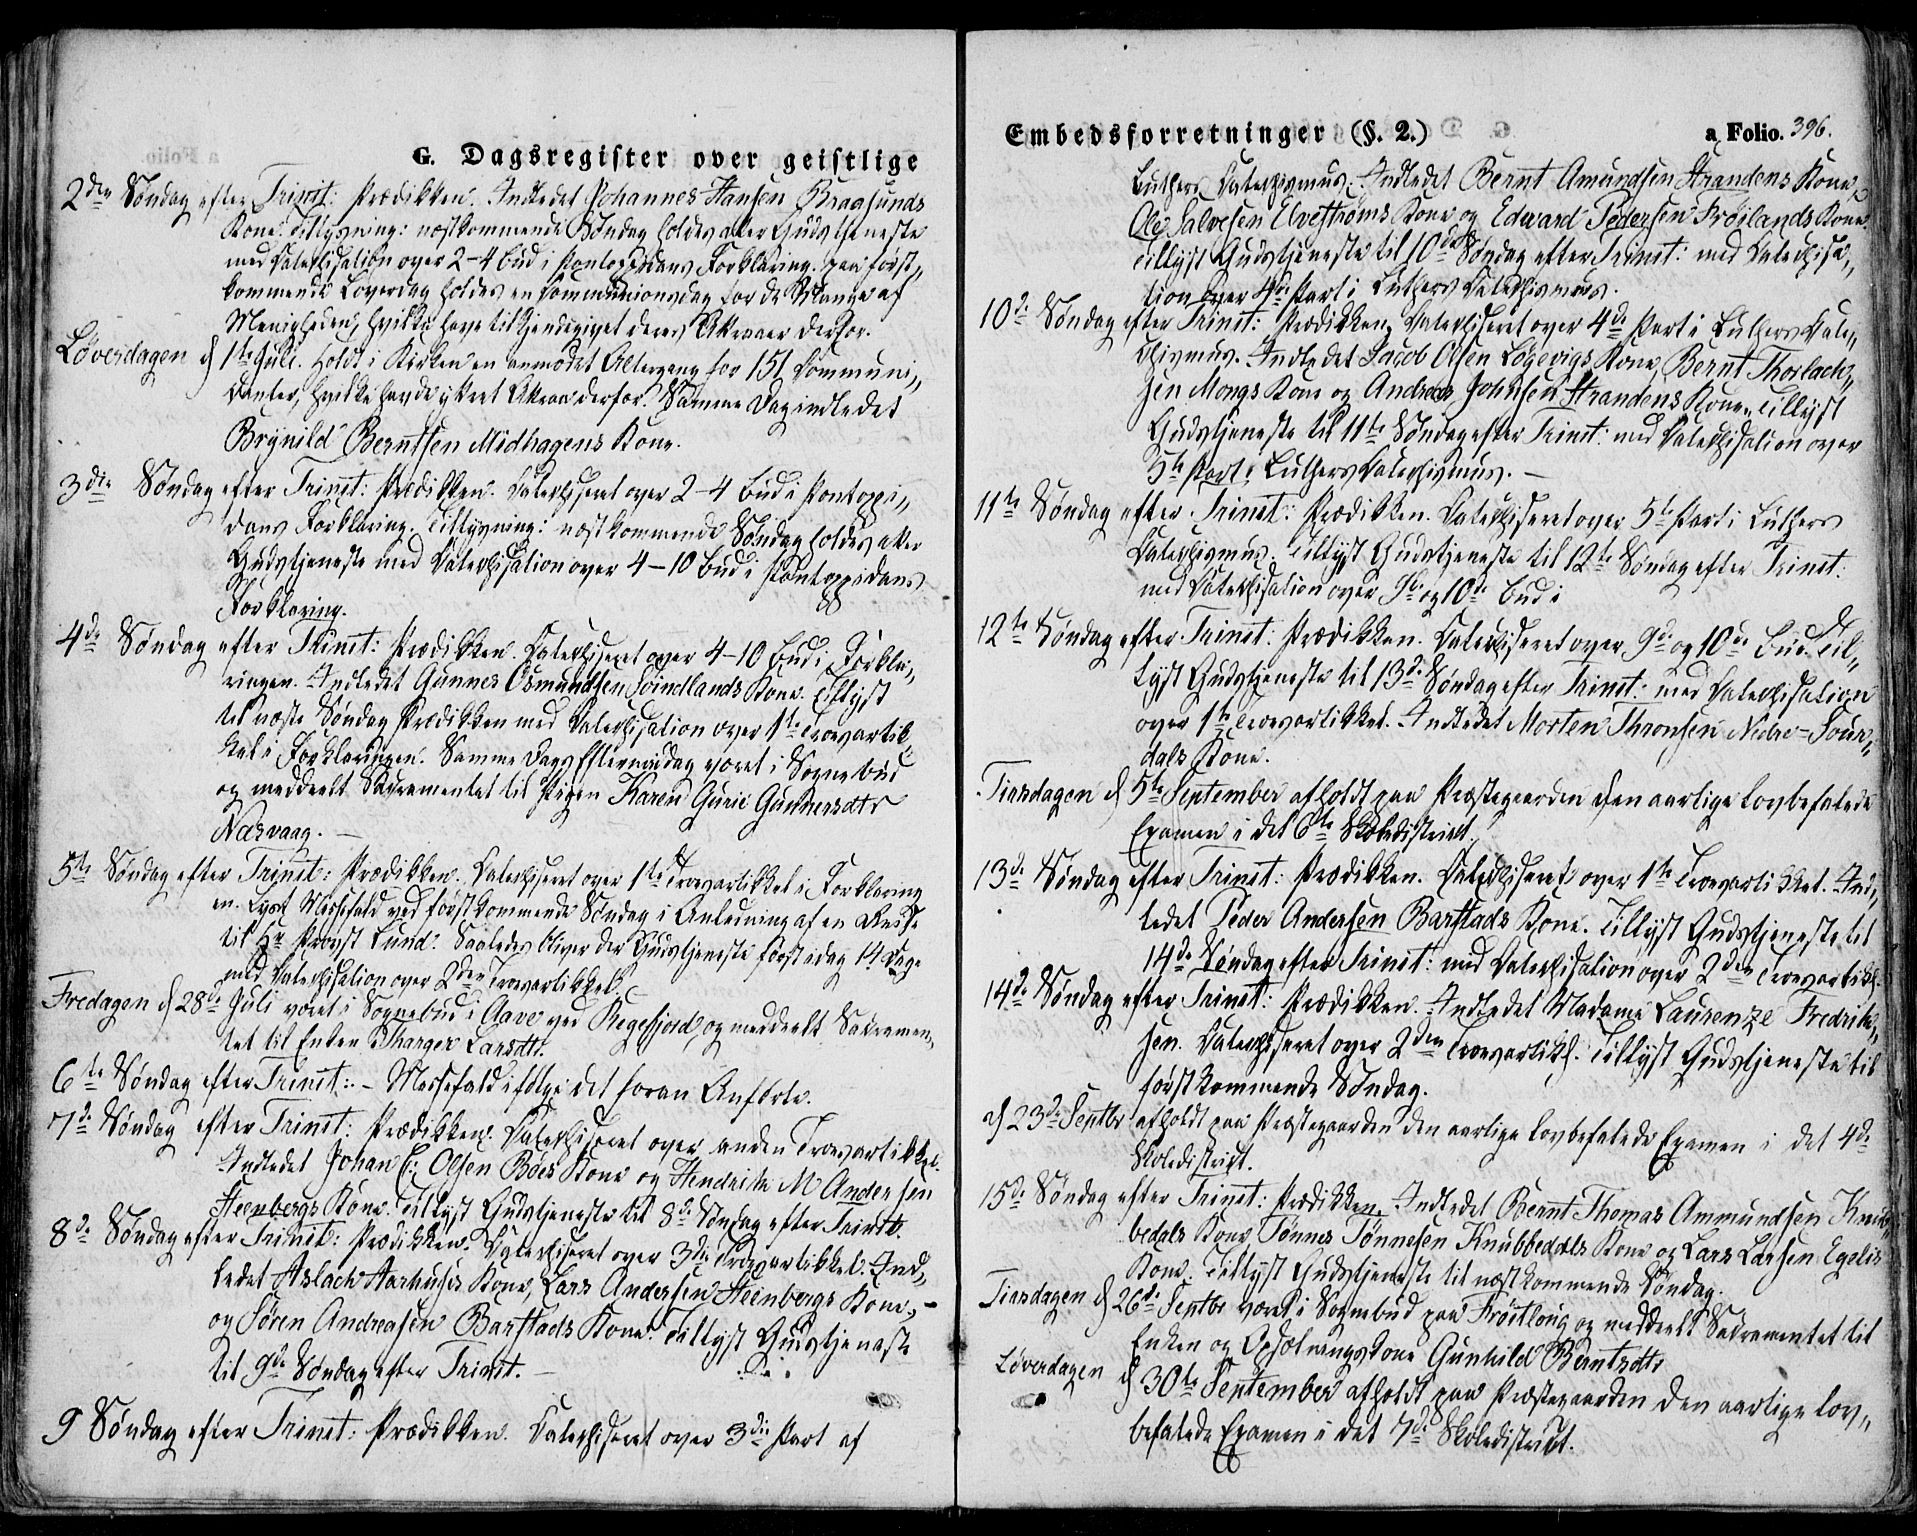 G. Dagsregister over geistlige
2den Søndag efter Trinit: Prædikken. Indledet Johannes Hansen Braasunds
Kone. Tillysning: næstkommende Søndag holdes atter Gudstjeneste
med Catechisation over 2–4 Bud i Pontoppidans Forklaring. paa først„
kommende Løverdag holdes en Communionsdag for de Mange af
Menigheden, hvilke have tilkjendegivet deres Attraaer derfor.
Løverdagen d 1ste Juli. Holdt i Kirken en anmodet Altergang for 151 Communi„
canter, hvilke havde ytret Attraa derfor. Samme Dag indledet
Brynild Berntsen Midhagens Kone.
3die Søndag efter Trinit: Prædikken. Catechiseret over 2–4 Bud i Pontoppi„
dans Forklaring. Tillysning: næstkommende Søndag holdes atter
Gudstjeneste med Catechisation over 4–10 Bud i Pontoppidans
Forklaring.
4de Søndag efter Trinit: Prædikken. Catechiseret over 4–10 Bud i Forkla„
ringen. Indledet Gunnes Osmundsen Spindlands Kone. Tillyst
til næste Søndag Prædikken med Catechisation over 1ste Troesartik„
kel i Forklaringen. Samme Dags Eftermiddag været i Sognebud
og meddeelt Sacramentet til Pigen Karen Gurie Gunnersdtr
Nærvaag. —
5te Søndag efter Trinit: Prædikken. Catechiseret over 1ste Troesartikkel i Forklaring
en. Lyst Messefald ved førstkommende Søndag i Anledning af en Reise
til Hr Provst Lund. Saaledes bliver der Gudstjeneste først idag 14 Dage
med Catechisation over 2den Troesartikkel.
Fredagen d 28de Juli været i Sognebud i Aave ved Regefjord, og meddeelt Sacramen„
tet til Enken Tharger Larsdtr.
6te Søndag efter Trinit: – Messefald ifølge det foran Anførte.
7de Søndag efter Trinit: Prædikken. Catechiseret over anden Troesartikkel.
Indledet Johan C: Olsen Bøes Kone og Hendrik M Andersen
Steenbergs Kone. Tillyst Gudstjeneste til 8de Søndag efter Trinit.
8de Søndag efter Trinit: Prædikken. Catechiseret over 3die Troesartikkel. Ind„
ledet Aslach Aarhuses Kone, Lars Andersen Steenbergs Kone, –
og Søren Andreasen Barstads Kone. Tillyst Gudstjeneste
til 9de Søndag efter Trinit. —
9 Søndag efter Trinit: Prædikken. Catechiseret over 3die Part af
Embedsforretninger (§. 2.)
a Folio. 396.
Luthers Catechismus. Indledet Bernt Amundsen Strandens Kone,
Ole Salvesen Elvestrøms Kone og Edward Pedersen Frøilands Kone.
Tillyst Gudstjeneste til 10de Søndag efter Trinit: med Catechisa„
tion over 4de Part i Luthers Catechismus.
10de Søndag efter Trinit: Prædikken. Catechiseret over 4de Part i Luthers Cate„
chismus. Indledet Jacob Olsen Løgevigs Kone, Bernt Thorlach„
sen Mongs Kone og Andreas Johnsen Strandens Kone. Tillyst
Gudstjeneste til 11te Søndag efter Trinit: med Catechisation over
5te Part i Luthers Catechismus. —
11te Søndag efter Trinit: Prædikken. Catechiseret over 5te Part i Luthers
Catechismus. Tillyst Gudstjeneste til 12te Søndag efter Trinit:
med Catechisation over 9de og 10de Bud i
12te Søndag efter Trinit: Prædikken. Catechiseret over 9de og 10de Bud. Til„
lyst Gudstjeneste til 13de Søndag efter Trinit: med Catechisation
over 1ste Troesartikkel. Indledet Morten Thronsen Nedre-Sour„
dals Kone.
Tirsdagen d 5te September afholdt paa Præstegaarden den aarlige lovbefalede
Examen i det 6te Skoledistrict.
13de Søndag efter Trinit: Prædikken. Catechiseret over 1ste Troesartikkel. Ind„
ledet Peder Andersen Barstads Kone. Tillyst Gudstjeneste til
14de Søndag efter Trinit: med Catechisation over 2den Troesartikk.
14de Søndag efter Trinit: Prædikken. Indledet Madame Laurenze Fredrik„
sen. Catechiseret over 2den Troesartikk. Tillyst Gudstjeneste til
førstkommende Søndag.
d 23de Septbr afholdt paa Præstegaarden den aarlige lovbefalede Examen i det 4de
Skoledistrict.
15de Søndag efter Trinit: Prædikken. Indledet Bernt Thomas Ammundsen Knub„
bedals Kone, Tønnes Tønnesen Knubbedals Kone og Lars Larsen Egelis
Kone. Tillyst Gudstjeneste til næstkommende Søndag.
Tirsdagen d 26de Septbr været i Sognebud paa Frøitloug og meddeelt Sacramentet til
Enken og Opsætningskone Gunhild Berntsdtr
Løverdagen d 30te September afholdt paa Præstegaarden den aarlige lov„
befalede Examen i det 7de Skoledistrict.